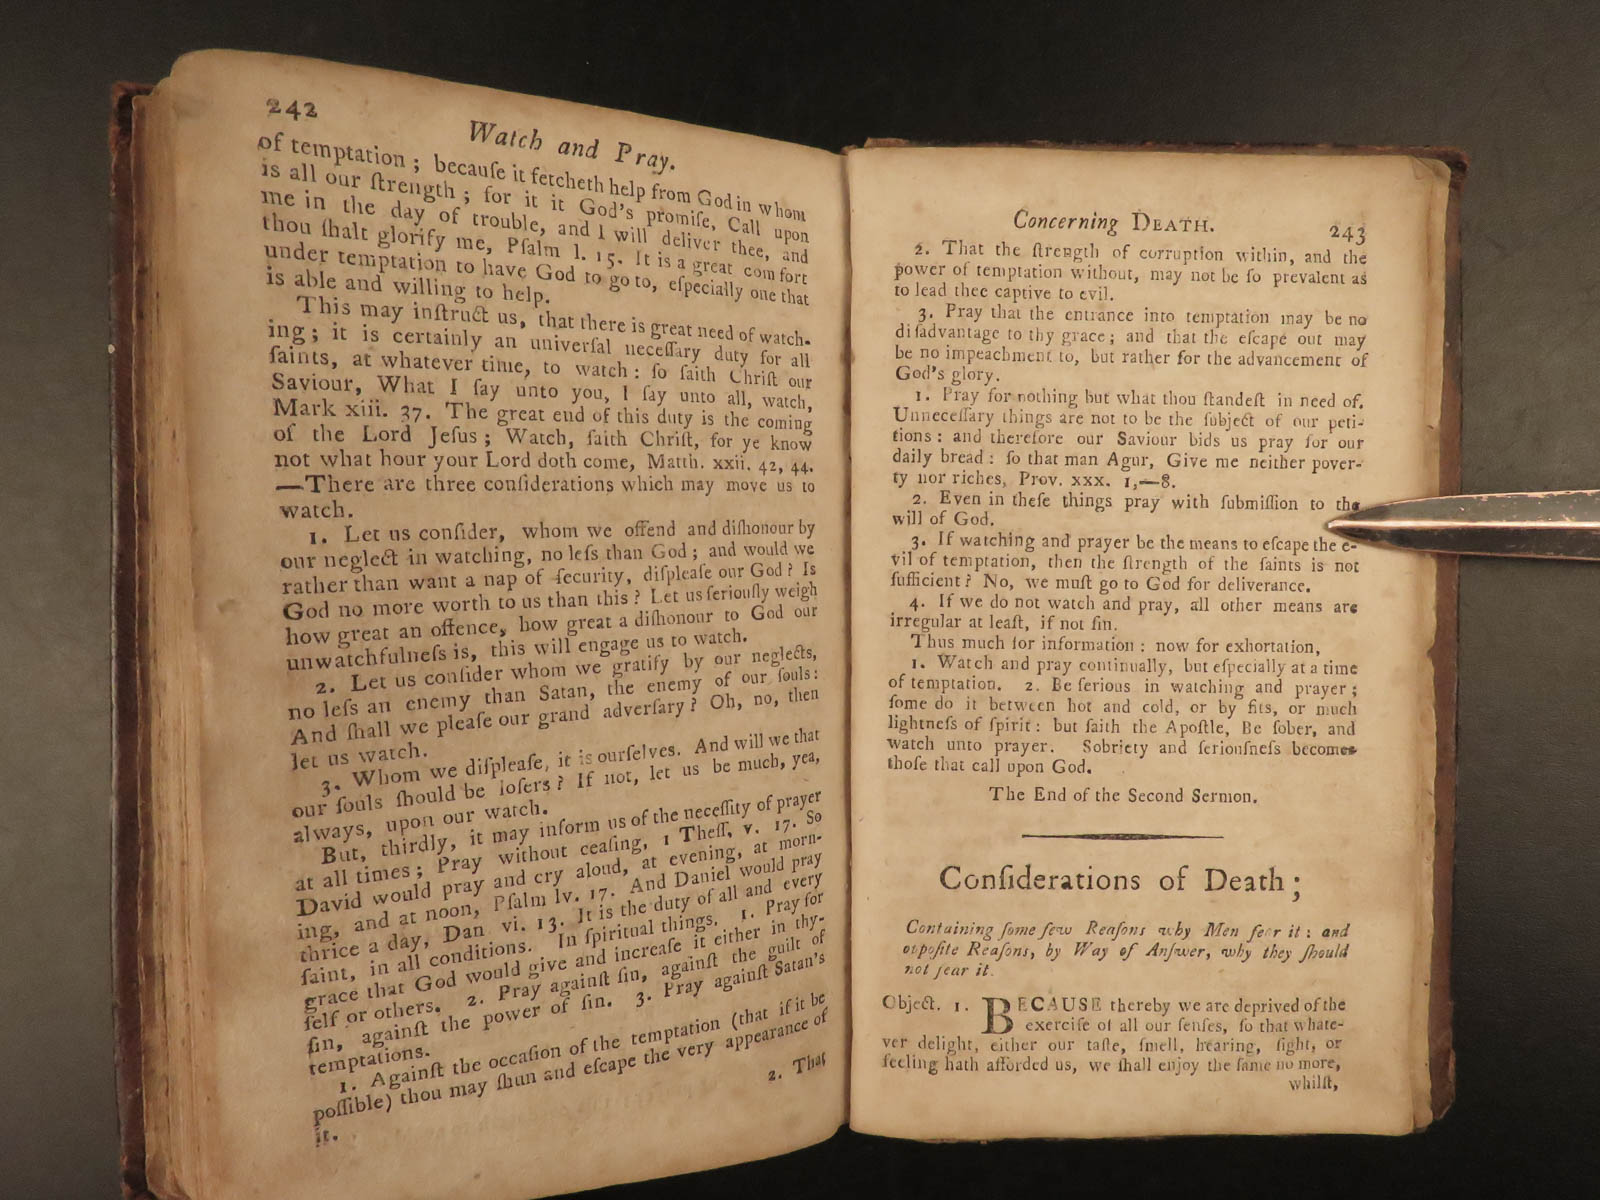 242
Watch and Pray.
of temptation ; becauſe it fetcheth help from God in whom
is all our ſtrength ; for it it God's promiſe, Call upon
me in the day of trouble, and I will deliver thee, and
thou ſhalt glorify me, Pſalm l. 15. It is a great comfort
under temptation to have God to go to, eſpecially one that
is able and willing to help.
This may inſtruct us, that there is great need of watch-
ing ; it is certainly an univerſal neceſſary duty for all
ſaints, at whatever time, to watch : ſo ſaith Chriſt our
Saviour, What I ſay unto you, I ſay unto all, watch,
Mark xiii. 37. The great end of this duty is the coming
of the Lord Jeſus ; Watch, ſaith Chriſt, for ye know
not what hour your Lord doth come, Matth. xxii. 42, 44.
—There are three conſiderations which may move us to
watch.
1. Let us conſider, whom we offend and diſhonour by
our neglect in watching, no leſs than God ; and would we
rather than want a nap of ſecurity, diſpleaſe our God ? Is
God no more worth to us than this ? Let us ſeriouſly weigh
how great an offence, how great a diſhonour to God our
unwatchfulneſs is, this will engage us to watch.
2. Let us conſider whom we gratify by our neglects,
no leſs an enemy than Satan, the enemy of our ſouls :
And ſhall we pleaſe our grand adverſary ? Oh, no, then
let us watch.
3. Whom we diſpleaſe, it is ourſelves. And will we that
our ſouls ſhould be loſers ? If not, let us be much, yea,
always, upon our watch.
But, thirdly, it may inform us of the neceſſity of prayer
at all times ; Pray without ceaſing, 1 Theſſ. v. 17. So
David would pray and cry aloud, at evening, at morn-
ing, and at noon, Pſalm lv. 17. And Daniel would pray
thrice a day, Dan. vi. 13. It is the duty of all and every
ſaint, in all conditions. In ſpiritual things. 1. Pray for
grace that God would give and increaſe it either in thy-
ſelf or others. 2. Pray againſt ſin, againſt the guilt of
ſin, againſt the power of ſin. 3. Pray againſt Satan's
temptations.
1. Againſt the occaſion of the temptation (that if it be
poſſible) thou may ſhun and eſcape the very appearance of
it.
2. That
Concerning DEATH.
243
2. That the ſtrength of corruption within, and the
power of temptation without, may not be ſo prevalent as
to lead thee captive to evil.
3. Pray that the entrance into temptation may be no
diſadvantage to thy grace ; and that the eſcape out may
be no impeachment to, but rather for the advancement of
God's glory.
1. Pray for nothing but what thou ſtandeſt in need of.
Unneceſſary things are not to be the ſubject of our peti-
tions : and therefore our Saviour bids us pray for our
daily bread : ſo that man Agur, Give me neither pover-
ty nor riches, Prov. xxx. 1,—8.
2. Even in theſe things pray with ſubmiſſion to the
will of God.
3. If watching and prayer be the means to eſcape the e-
vil of temptation, then the ſtrength of the ſaints is not
ſufficient ? No, we muſt go to God for deliverance.
4. If we do not watch and pray, all other means are
irregular at leaſt, if not ſin.
Thus much for information : now for exhortation,
1. Watch and pray continually, but eſpecially at a time
of temptation. 2. Be ſerious in watching and prayer ;
ſome do it between hot and cold, or by fits, or much
lightneſs of ſpirit : but ſaith the Apoſtle, Be ſober, and
watch unto prayer. Sobriety and ſeriouſneſs becomes
thoſe that call upon God.
The End of the Second Sermon.
Conſiderations of Death ;
Containing ſome few Reaſons why Men fear it : and
oppoſite Reaſons, by Way of Anſwer, why they ſhould
not fear it.
Object. 1. BECAUSE thereby we are deprived of the
exerciſe of all our ſenſes, ſo that whate-
ver delight, either our taſte, ſmell, hearing, ſight, or
feeling hath afforded us, we ſhall enjoy the ſame no more,
whilſt,